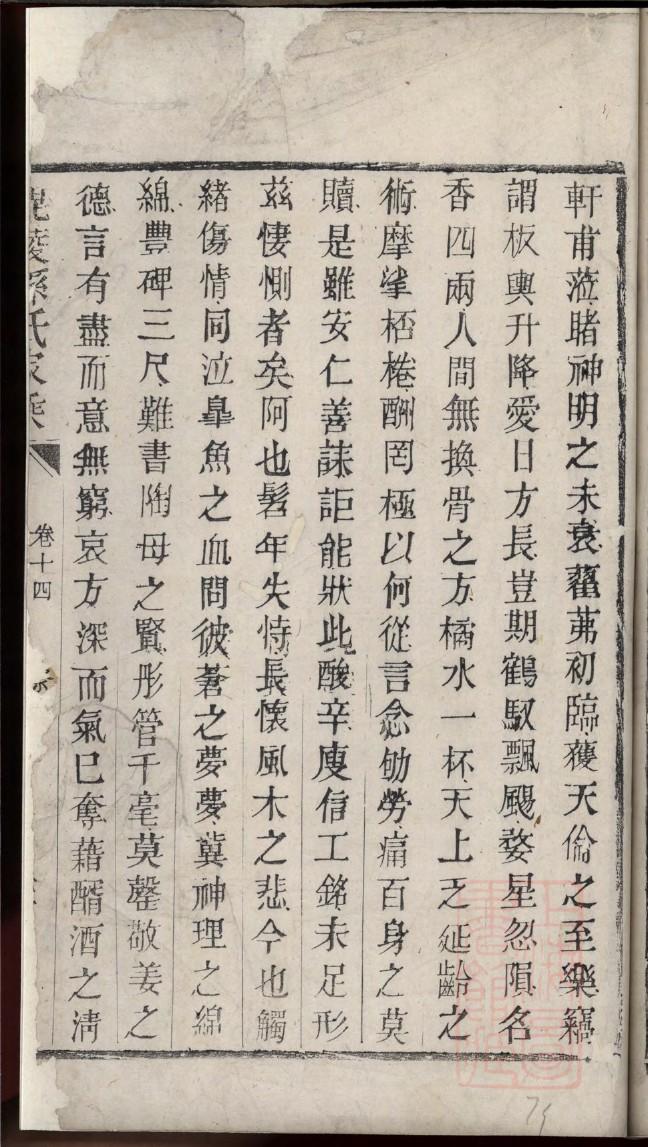 軒甫蒞睹神明之未衰翟茀初臨獲天倫之至樂竊
謂板輿升降愛日方長豈期鶴馭飄颺婺星忽隕名
香四兩人間無換骨之方橘水一杯天上乏延齡之
術摩挲桮棬酬罔極以何從言念劬勞痛百身之莫
贖是雖安仁善誄詎能狀此酸辛庾信工銘未足形
兹悽惻者矣阿也髫年失恃長懷風木之悲今也觸
緒傷情同泣臯魚之血問彼蒼之夢夢冀神理之綿
綿豐碑三尺難書陶母之賢彤管千毫莫罄敬姜之
德言有盡而意無窮哀方深而氣已奪藉醑酒之清
毘陵孫氏家乘
卷十四
75